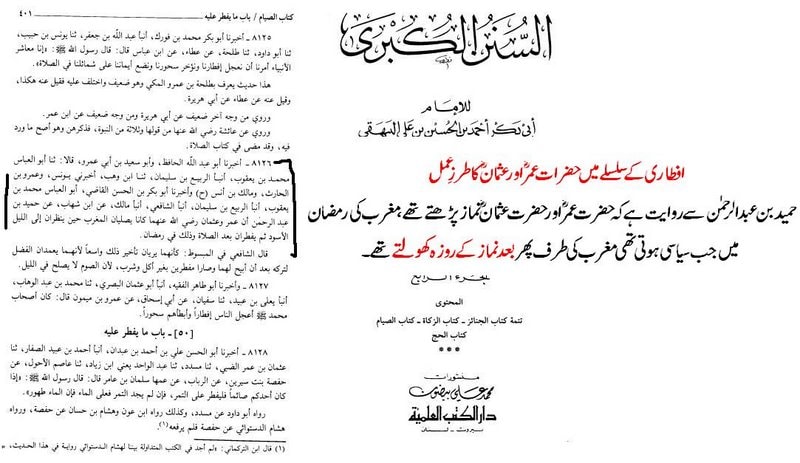 ٤٠١
كتاب الصيام / باب ما يفطر عليه
٨١٢٥ - أخبرنا أبو بكر محمد بن فورك، أنبأ عبد اللَّه بن جعفر، ثنا يونس بن حبيب،
ثنا أبو داود، ثنا طلحة، عن عطاء، عن ابن عباس قال: قال رسول اللَّه ﷺ: «إنا معاشر
الأنبياء أمرنا أن نعجل إفطارنا ونؤخر سحورنا ونضع أيماننا على شمائلنا في الصلاة».
هذا حديث يعرف بطلحة بن عمرو المكي وهو ضعيف واختلف عليه فقيل عنه هكذا،
وقيل عنه عن عطاء عن أبي هريرة.
وروي من وجه آخر ضعيف عن أبي هريرة ومن وجه ضعيف عن ابن عمر.
وروي عن عائشة رضي الله عنها من قولها وثلاثة من النبوة، فذكرهن وهو أصح ما ورد
فيه، وقد مضى في كتاب الصلاة.
٨١٢٦ - أخبرنا أبو عبد اللَّه الحافظ، وأبو سعيد بن أبي عمرو، قالا: ثنا أبو العباس
محمد بن يعقوب، أنبأ الربيع بن سليمان، ثنا ابن وهب، أخبرني يونس، وعمرو بن
الحارث، ومالك بن أنس (ح) وأخبرنا أبو بكر بن الحسن القاضي، أبو العباس محمد بن
يعقوب، أنبأ الربيع بن سليمان، أنبأ الشافعي، أنبأ مالك، عن ابن شهاب، عن حميد بن
عبد الرحمٰن أن عمر وعثمان رضي الله عنهما كانا يصليان المغرب حين ينظران إلى الليل
الأسود ثم يفطران بعد الصلاة وذلك في رمضان.
قال الشافعي في المبسوط: كأنهما يريان تأخير ذلك واسعاً لأنهما يعمدان الفضل
لتركه بعد أن أبيح لهما وصارا مفطرين بغير أكل وشرب، لأن الصوم لا يصلح في الليل.
٨١٢٧ - وأخبرنا أبو طاهر الفقيه، أنبأ أبو عثمان البصري، ثنا محمد بن عبد الوهاب،
أنبأ يعلى بن عبيد، ثنا سفيان، عن أبي إسحاق، عن عمرو بن ميمون قال: كان أصحاب
محمد ﷺ أعجل الناس إفطاراً وأبطأهم سحوراً.
[٥٠] - باب ما يفطر عليه
٨١٢٨ - أخبرنا أبو الحسن علي بن أحمد بن عبدان، أنبأ أحمد بن عبيد الصفار، ثنا
عثمان بن عمر الضبي، ثنا مسدد، ثنا عبد الواحد يعني ابن زياد، ثنا عاصم الأحول، عن
حفصة بنت سيرين، عن الرباب، عن عمها سلمان بن عامر قال: قال رسول اللَّه ﷺ: «إذا
كان أحدكم صائماً فليفطر على التمر، فإن لم يجد التمر فعلى الماء فإن الماء طهوره».
رواه أبو داود عن مسدد، وكذلك رواه ابن عون وهشام بن حسان عن حفصة، ورواه
هشام الدستوائي عن حفصة فلم يرفعه(١).
(١) قال ابن التركماني: «لم أجد في الكتب المتداولة بيننا لهشام الدستوائي رواية في هذا الحديث، =
السنن الكبرى
للإمام
أبي بكر أحمد بن الحسين بن علي البيهقي
افطاری کے سلسلے میں حضرات عمرؓ اور عثمانؓ کا طرزِ عمل
حمید بن عبدالرحمٰن سے روایت ہے کہ حضرت عمرؓ اور حضرت عثمانؓ نماز پڑھتے تھے، مغرب کی رمضان
میں جب سیاسی ہوتی تھی مغرب کی طرف پھر بعد نماز کے روزہ کھولتے تھے۔
الجزء الرابع
المحتوى
تتمة كتاب الجنائز - كتاب الزكاة - كتاب الصيام
كتاب الحج
منشورات
محمد علي بيضون
دار الكتب العلمية
بيروت - لبنان